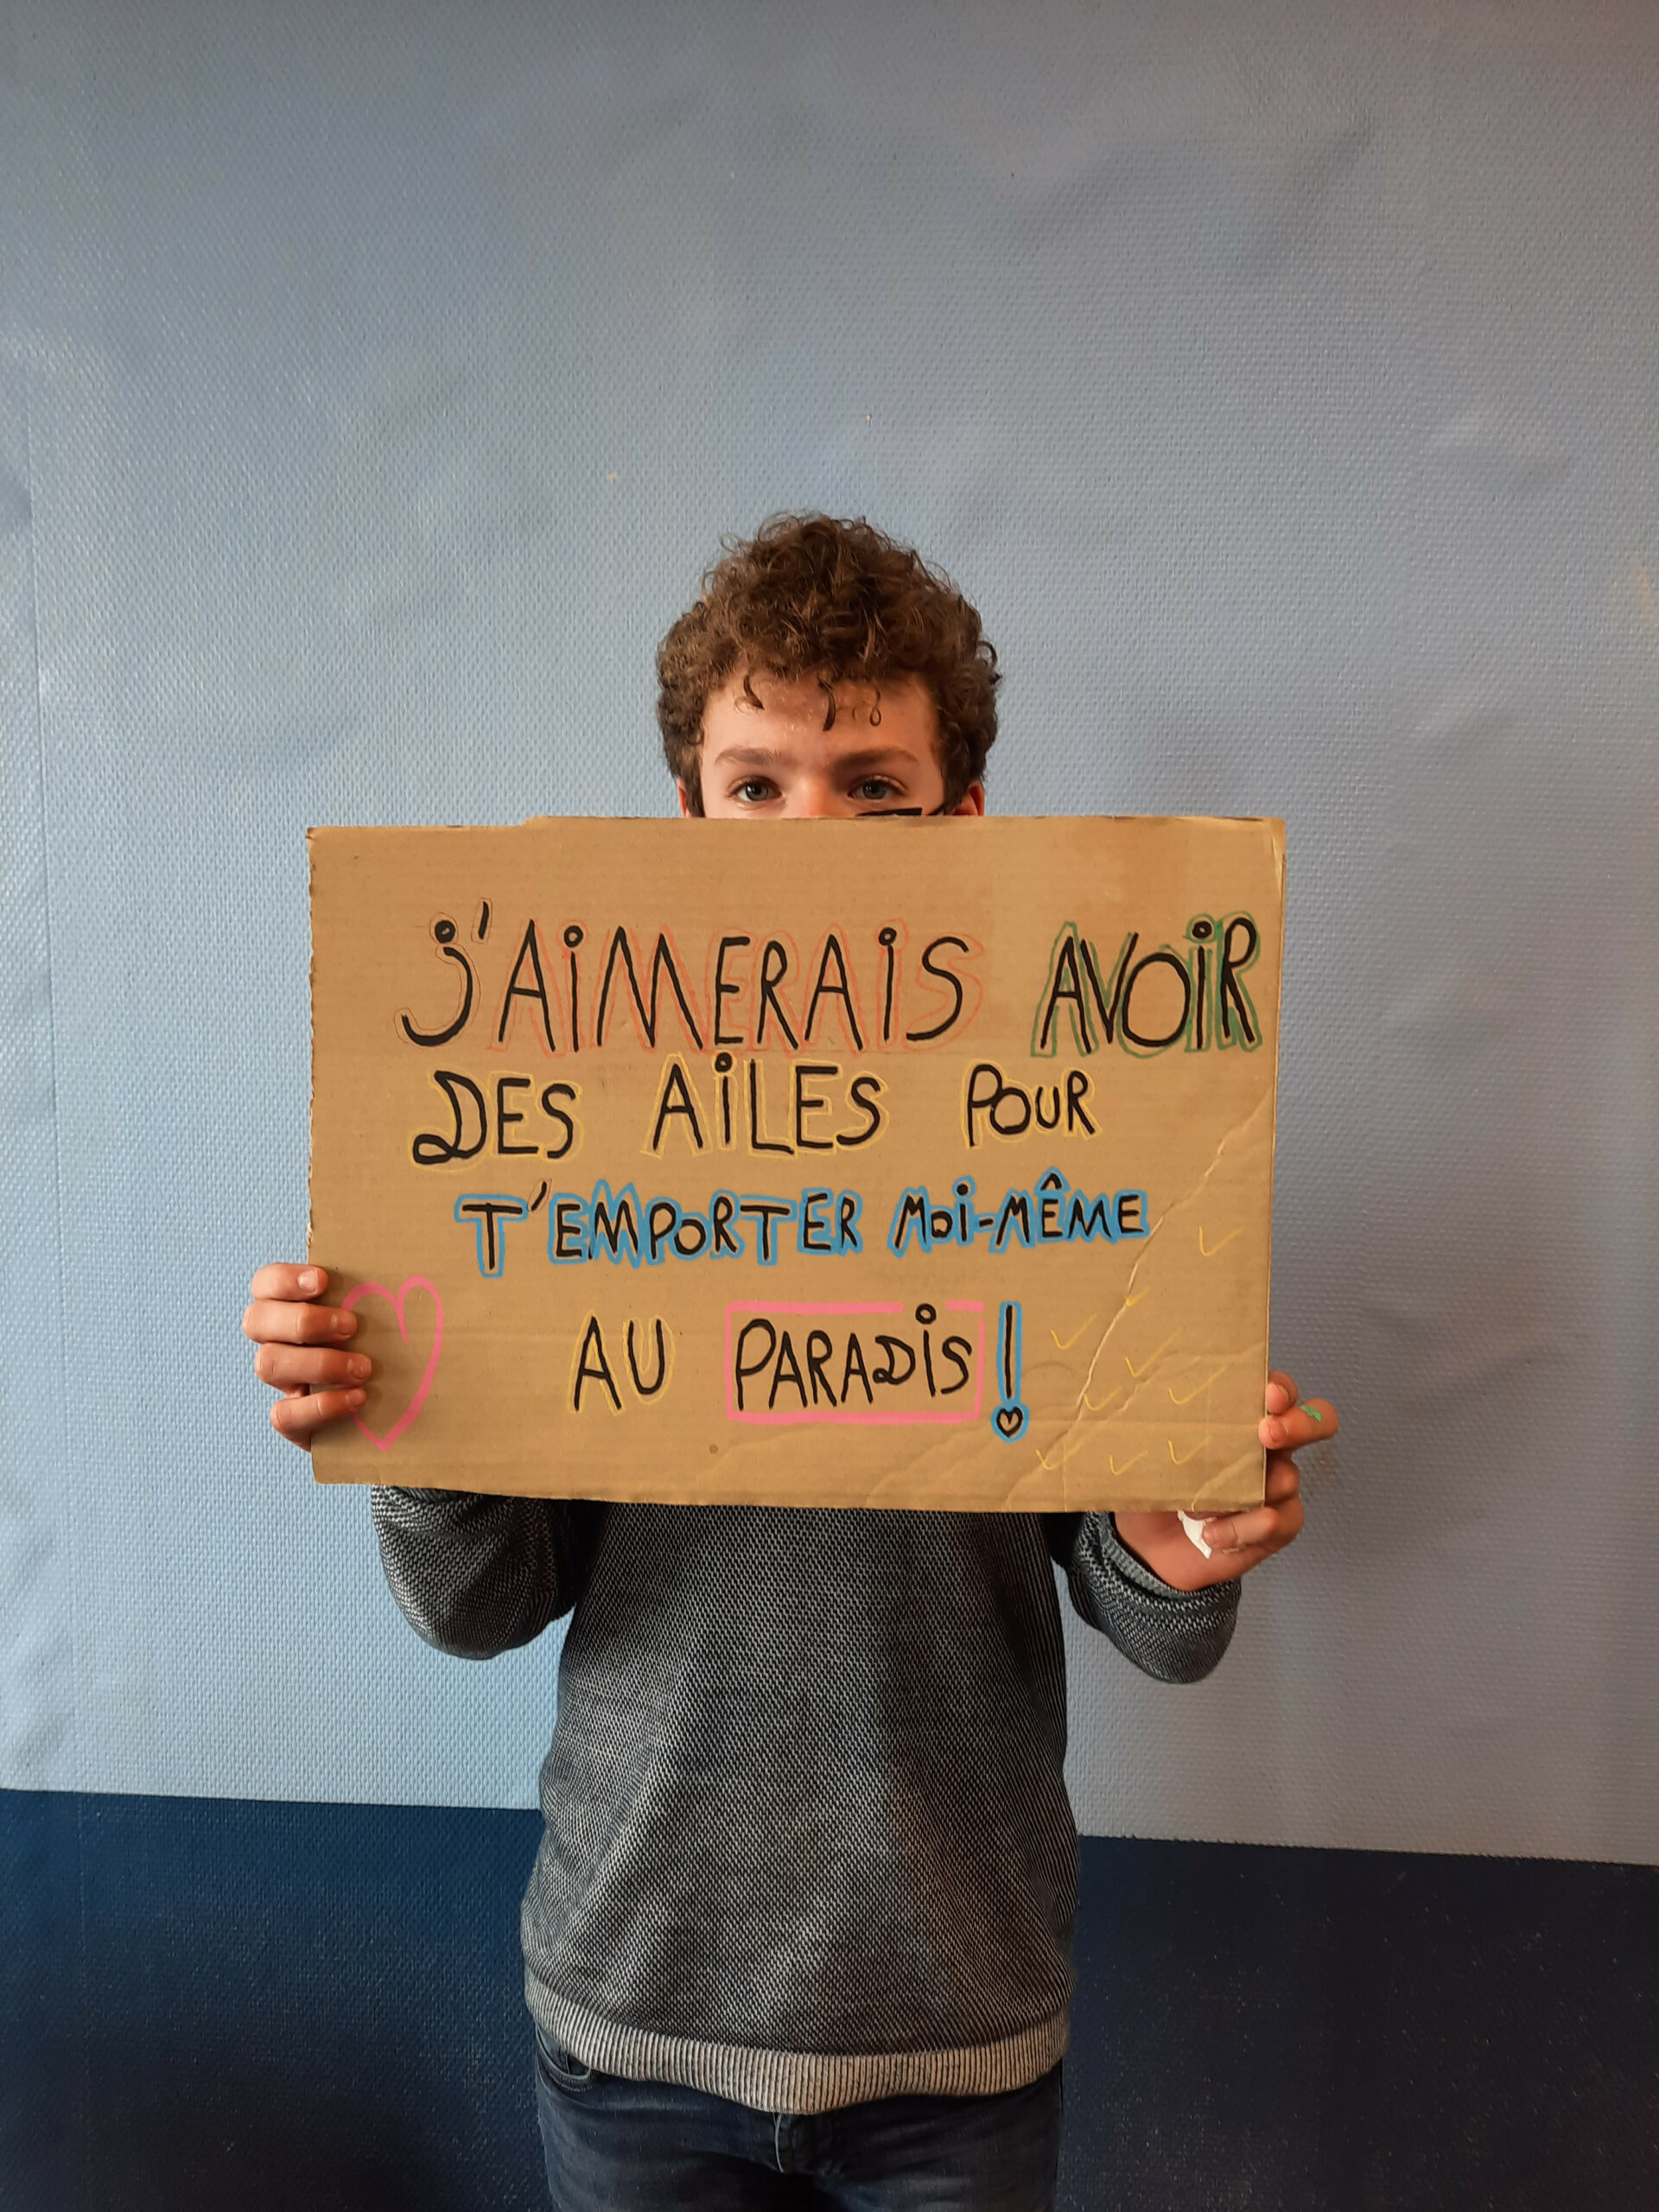 J'AIMERAIS AVOIR
DES AILES POUR
T'EMPORTER MOI-MÊME
AU PARADIS !